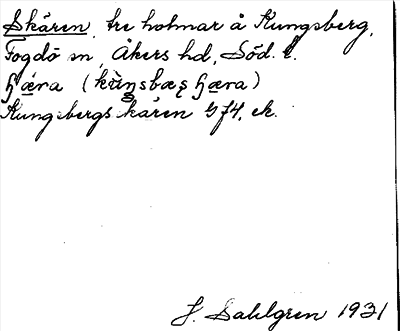 Skären, tre holmar å Kungsberg,
Fogdö sn, Åkers hd, Söd. l.
ɧǽra (kùŋsbæʂ ɧæra)
Kungsbergs kären G f 4, ek.
J. Sahlgren 1931